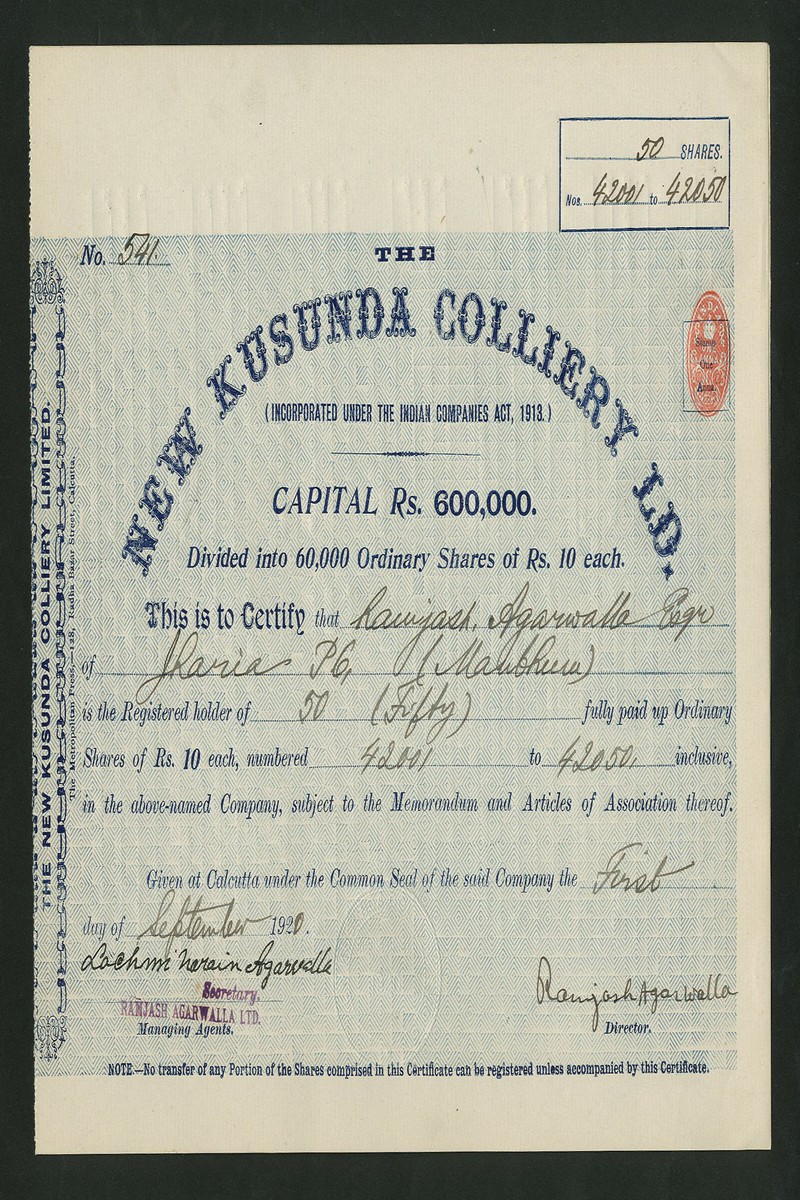 50 SHARES.
Nos. 42001 to 42050
No. 541.
THE
NEW KUSUNDA COLLIERY LD.
(INCORPORATED UNDER THE INDIAN COMPANIES ACT, 1913.)
Stamp
One
Anna
CAPITAL Rs. 600,000.
Divided into 60,000 Ordinary Shares of Rs. 10 each.
This is to Certify that Ramjash, Agarwalla Esqr
of Jharia PO, (Manbhum)
is the Registered holder of 50 (Fifty) fully paid up Ordinary
Shares of Rs. 10 each, numbered 42001 to 42050, inclusive,
in the above-named Company, subject to the Memorandum and Articles of Association thereof.
Given at Calcutta under the Common Seal of the said Company the First
day of September 1920.
Lachmi Narain Agarwalla
Secretary,
RAMJASH AGARWALLA LTD.
Managing Agents.
Ramjash Agarwalla
Director.
NOTE.—No transfer of any Portion of the Shares comprised in this Certificate can be registered unless accompanied by this Certificate.
THE NEW KUSUNDA COLLIERY LIMITED.
The Metropolitan Press,—128, Radha Bazar Street, Calcutta.